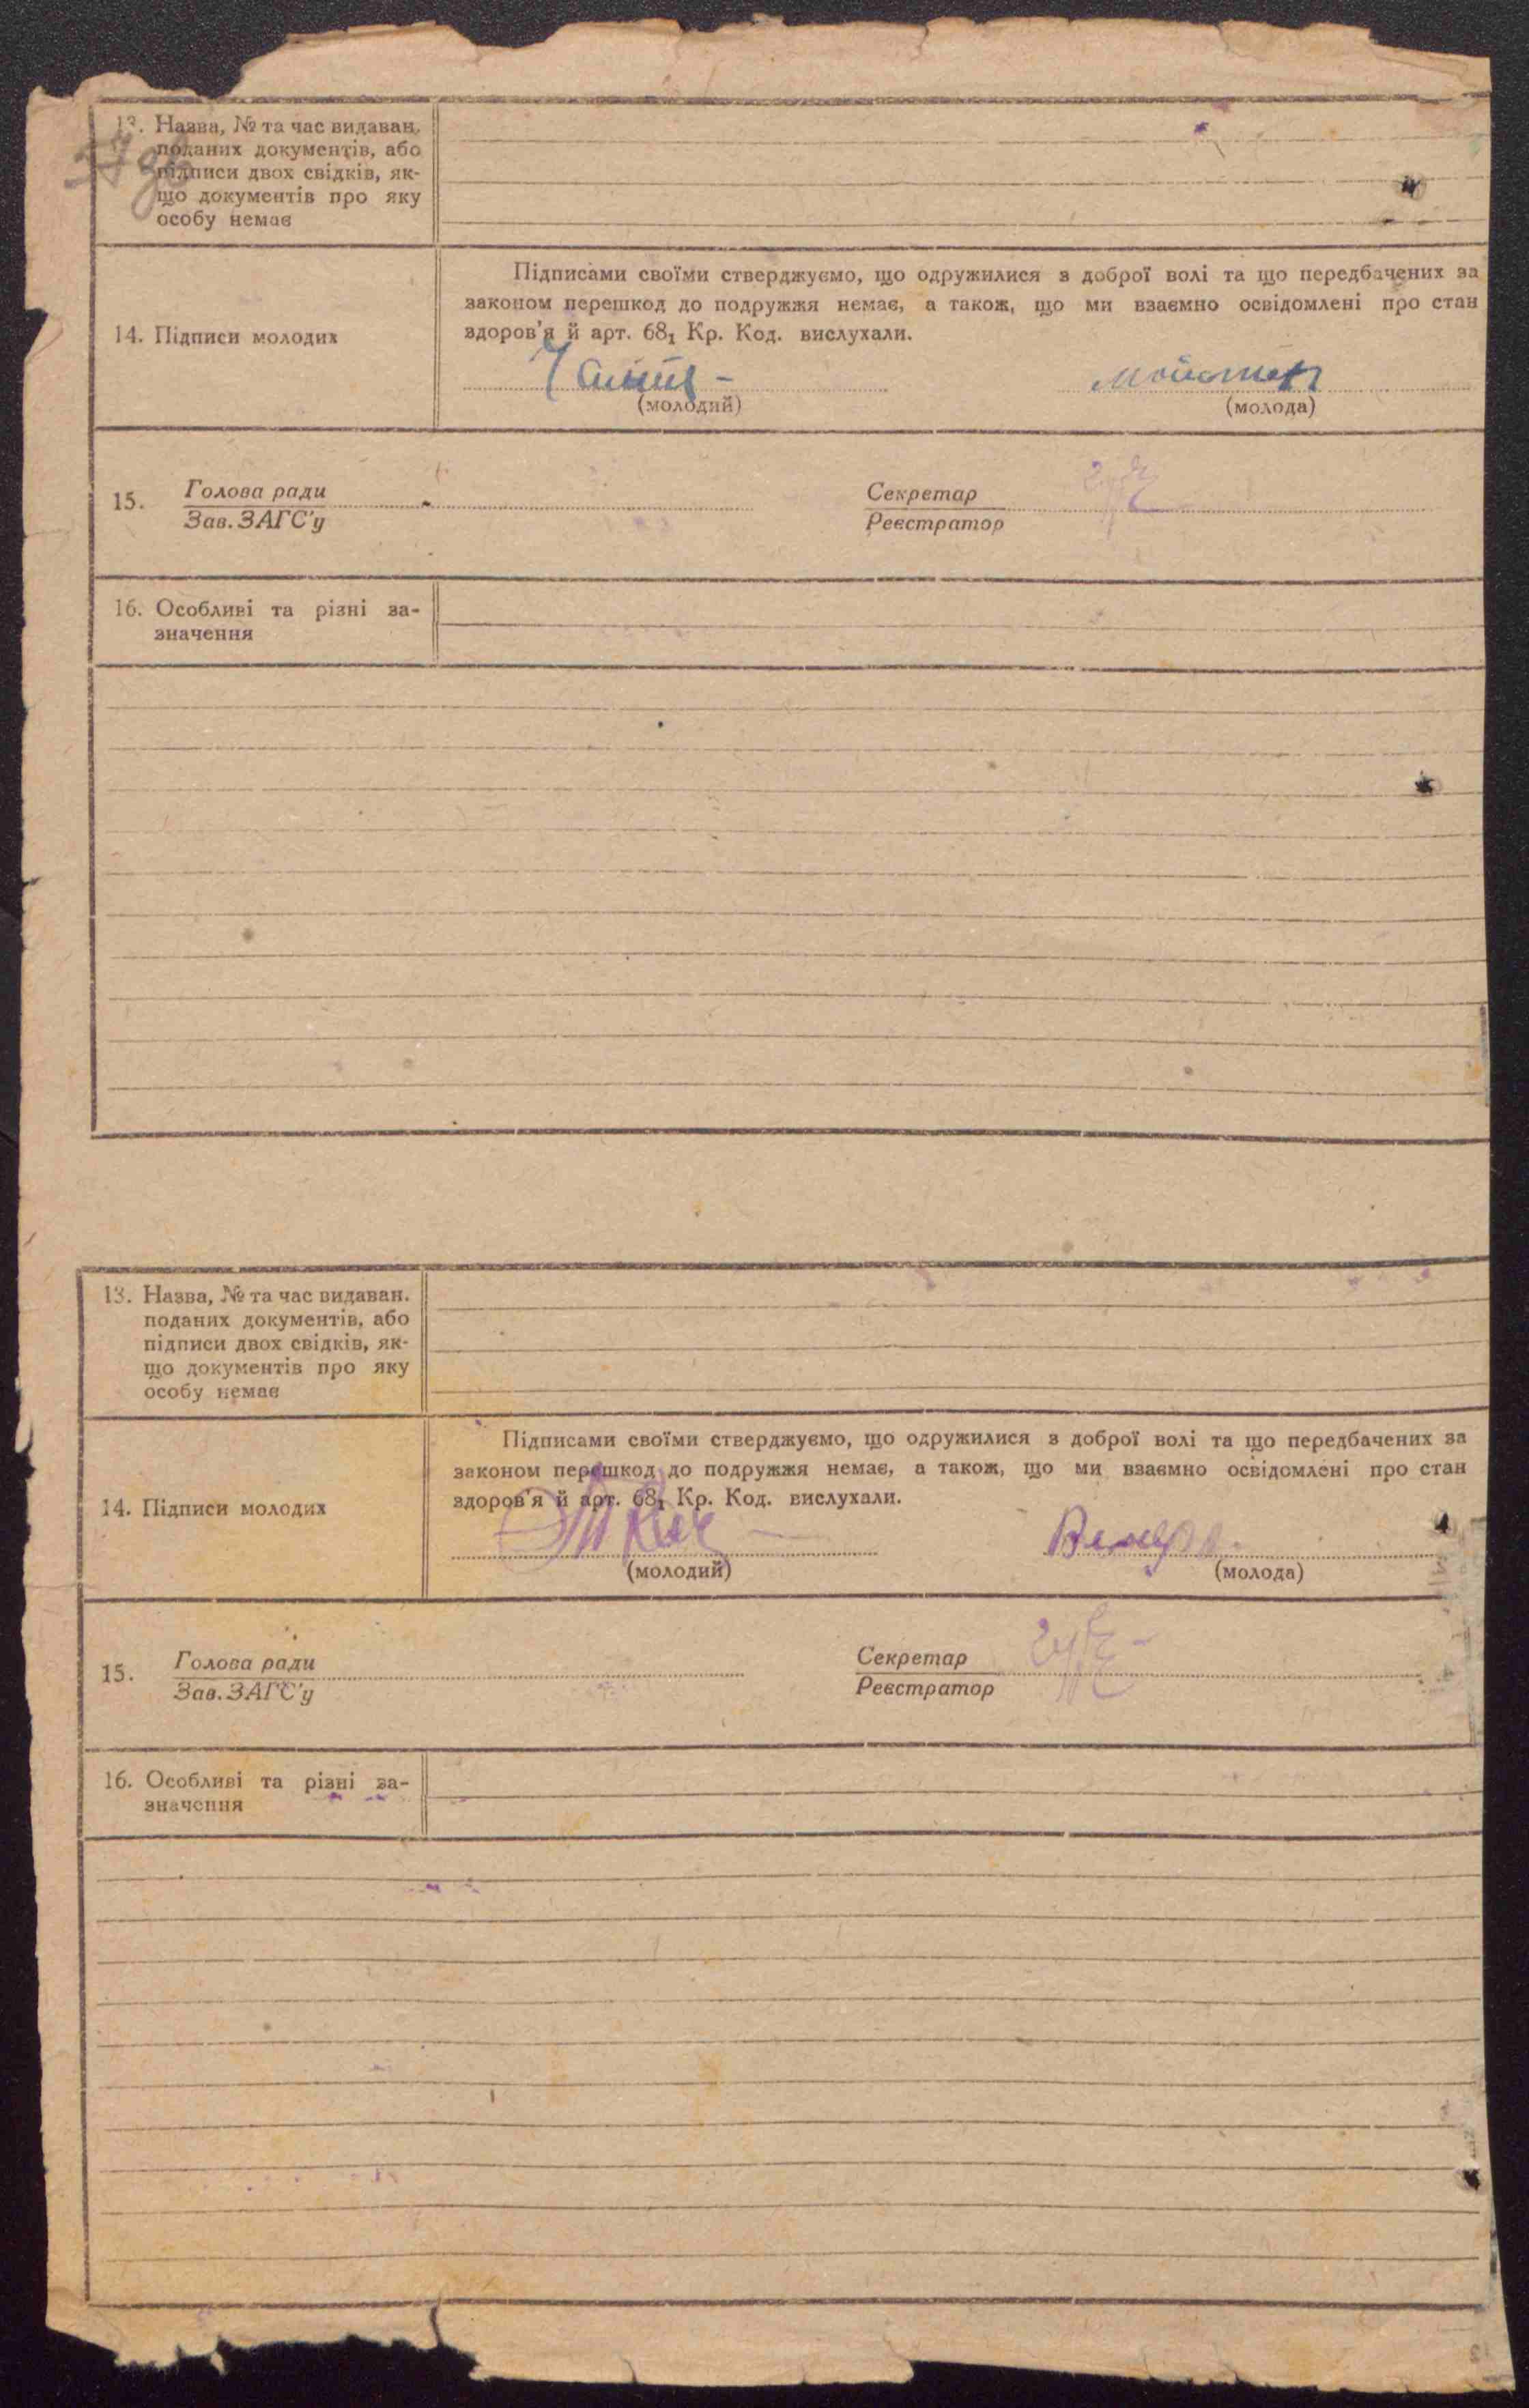 13. Назва, № та час видаван.
поданих документів, або
підписи двох свідків, як-
що документів про яку
особу немає
Підписами своїми стверджуємо, що одружилися з доброї волі та що передбачених за
законом перешкод до подружжя немає, а також, що ми взаємно освідомлені про стан
здоров'я й арт. 68₁ Кр. Код. вислухали.
14. Підписи молодих
(молодий)
(молода)
15. Голова ради
Зав. ЗАГС'у
Секретар
Реєстратор
16. Особливі та різні за-
значення
13. Назва, № та час видаван.
поданих документів, або
підписи двох свідків, як-
що документів про яку
особу немає
Підписами своїми стверджуємо, що одружилися з доброї волі та що передбачених за
законом перешкод до подружжя немає, а також, що ми взаємно освідомлені про стан
здоров'я й арт. 68₁ Кр. Код. вислухали.
14. Підписи молодих
(молодий)
(молода)
15. Голова ради
Зав. ЗАГС'у
Секретар
Реєстратор
16. Особливі та різні за-
значення